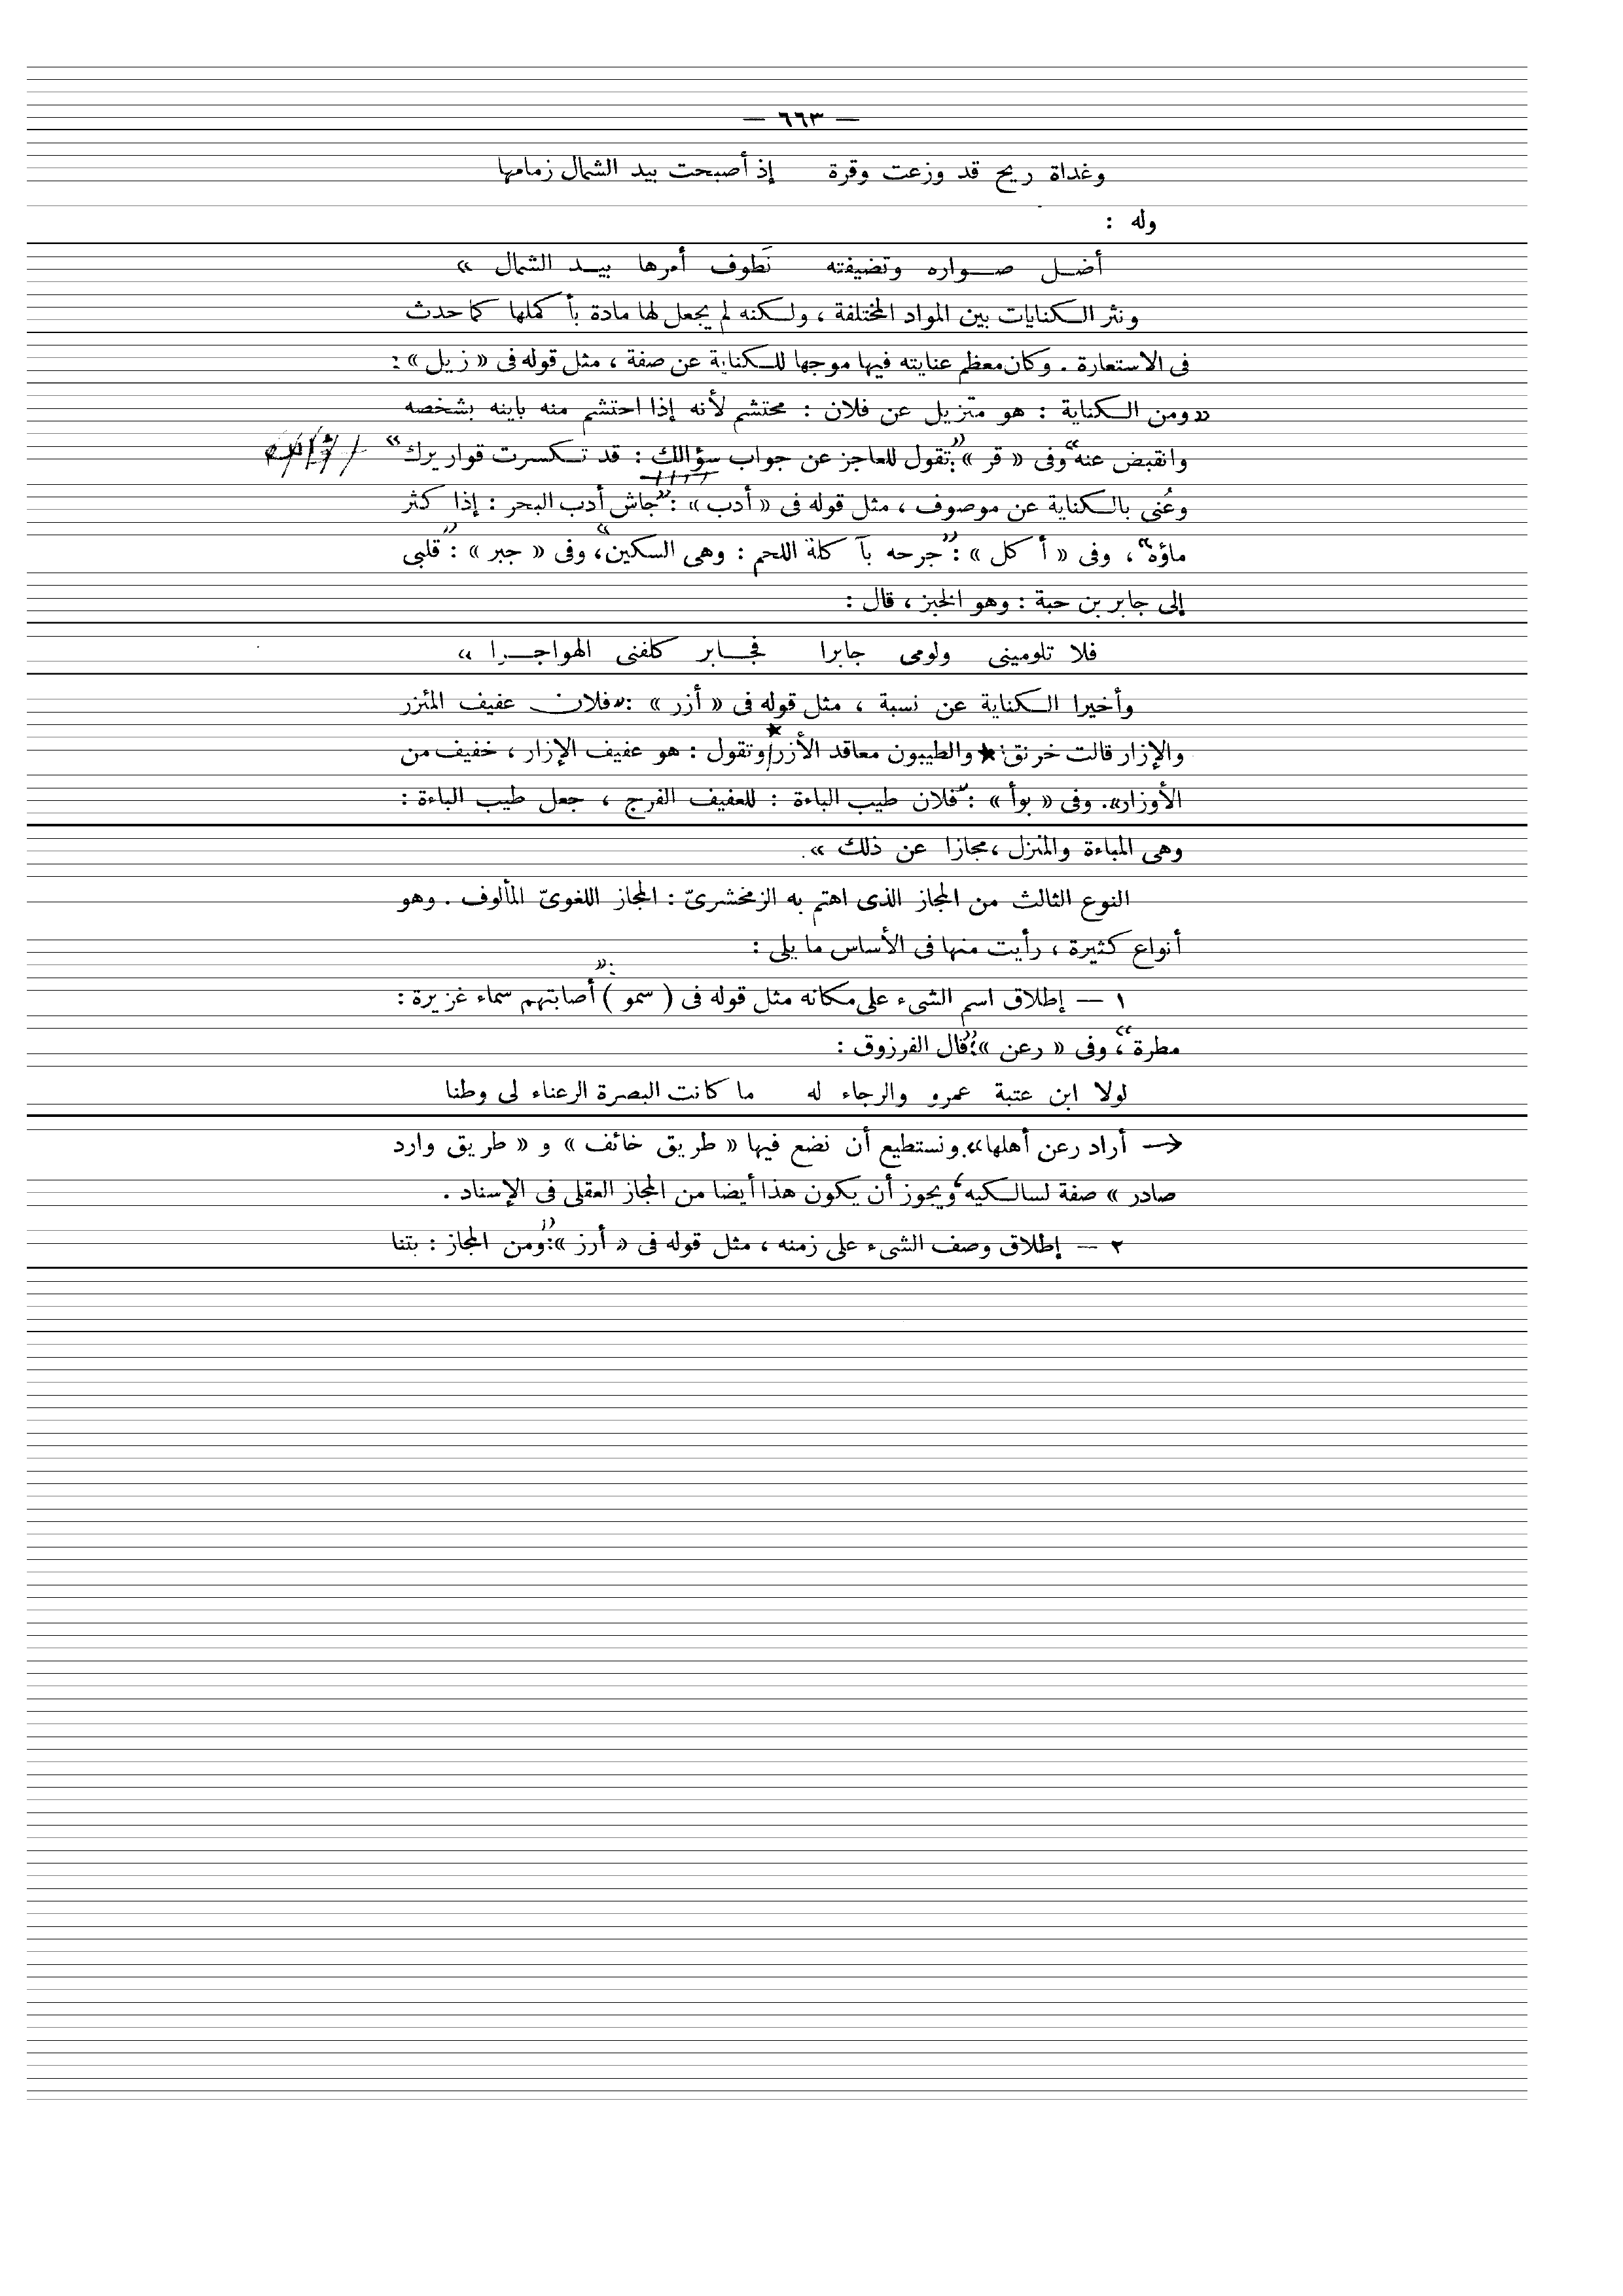 — ٦٦٣ —
وغداة ريح قد وزعت وقرة إذ أصبحت بيد الشمال زمامها
وله :
أضل صواره وتضيفته نَطوف أمرها بيد الشمال »
ونثر الكنايات بين المواد المختلفة ، ولكنه لم يجعل لها مادة بأكملها كما حدث
فى الاستعارة . وكان معظم عنايته فيها موجها للكناية عن صفة ، مثل قوله فى « زيل » :
« ومن الكناية : هو متزيل عن فلان : محتشم لأنه إذا احتشم منه باينه بشخصه
وانقبض عنه » وفى « قر » : « تقول للعاجز عن جواب سؤالك : قد تكسرت قواريرك »
وعُنى بالكناية عن موصوف ، مثل قوله فى « أدب » : « جاش أدب البحر : إذا كثر
ماؤه » ، وفى « أكل » : « جرحه بآكلة اللحم : وهى السكين » ، وفى « جبر » : « قلبى
إلى جابر بن حبة : وهو الخبز ، قال :
فلا تلومينى ولومى جابرا فجابر كلفنى الهواجرا »
وأخيرا الكناية عن نسبة ، مثل قوله فى « أزر » : « فلان عفيف المئزر
والإزار قالت خرنق : ★ والطيبون معاقد الأزر ★ وتقول : هو عفيف الإزار ، خفيف من
الأوزار » . وفى « بوأ » : « فلان طيب الباءة : للعفيف الفرج ، جعل طيب الباءة :
وهى المباءة والمنزل ، مجازا عن ذلك » .
النوع الثالث من المجاز الذى اهتم به الزمخشرىّ : المجاز اللغوىّ المألوف . وهو
أنواع كثيرة ، رأيت منها فى الأساس ما يلى :
١ — إطلاق اسم الشىء على مكانه مثل قوله فى ( سمو ) : « أصابتهم سماء غزيرة :
مطرة » ، وفى « رعن » : « قال الفرزوق :
لولا ابن عتبة عمرو والرجاء له ما كانت البصرة الرعناء لى وطنا
أراد رعن أهلها » . ونستطيع أن نضع فيها « طريق خائف » و « طريق وارد
صادر » صفة لسالكيه ، ويجوز أن يكون هذا أيضا من المجاز العقلى فى الإسناد .
٢ — إطلاق وصف الشىء على زمنه ، مثل قوله فى « أرز » : « ومن المجاز : بتنا